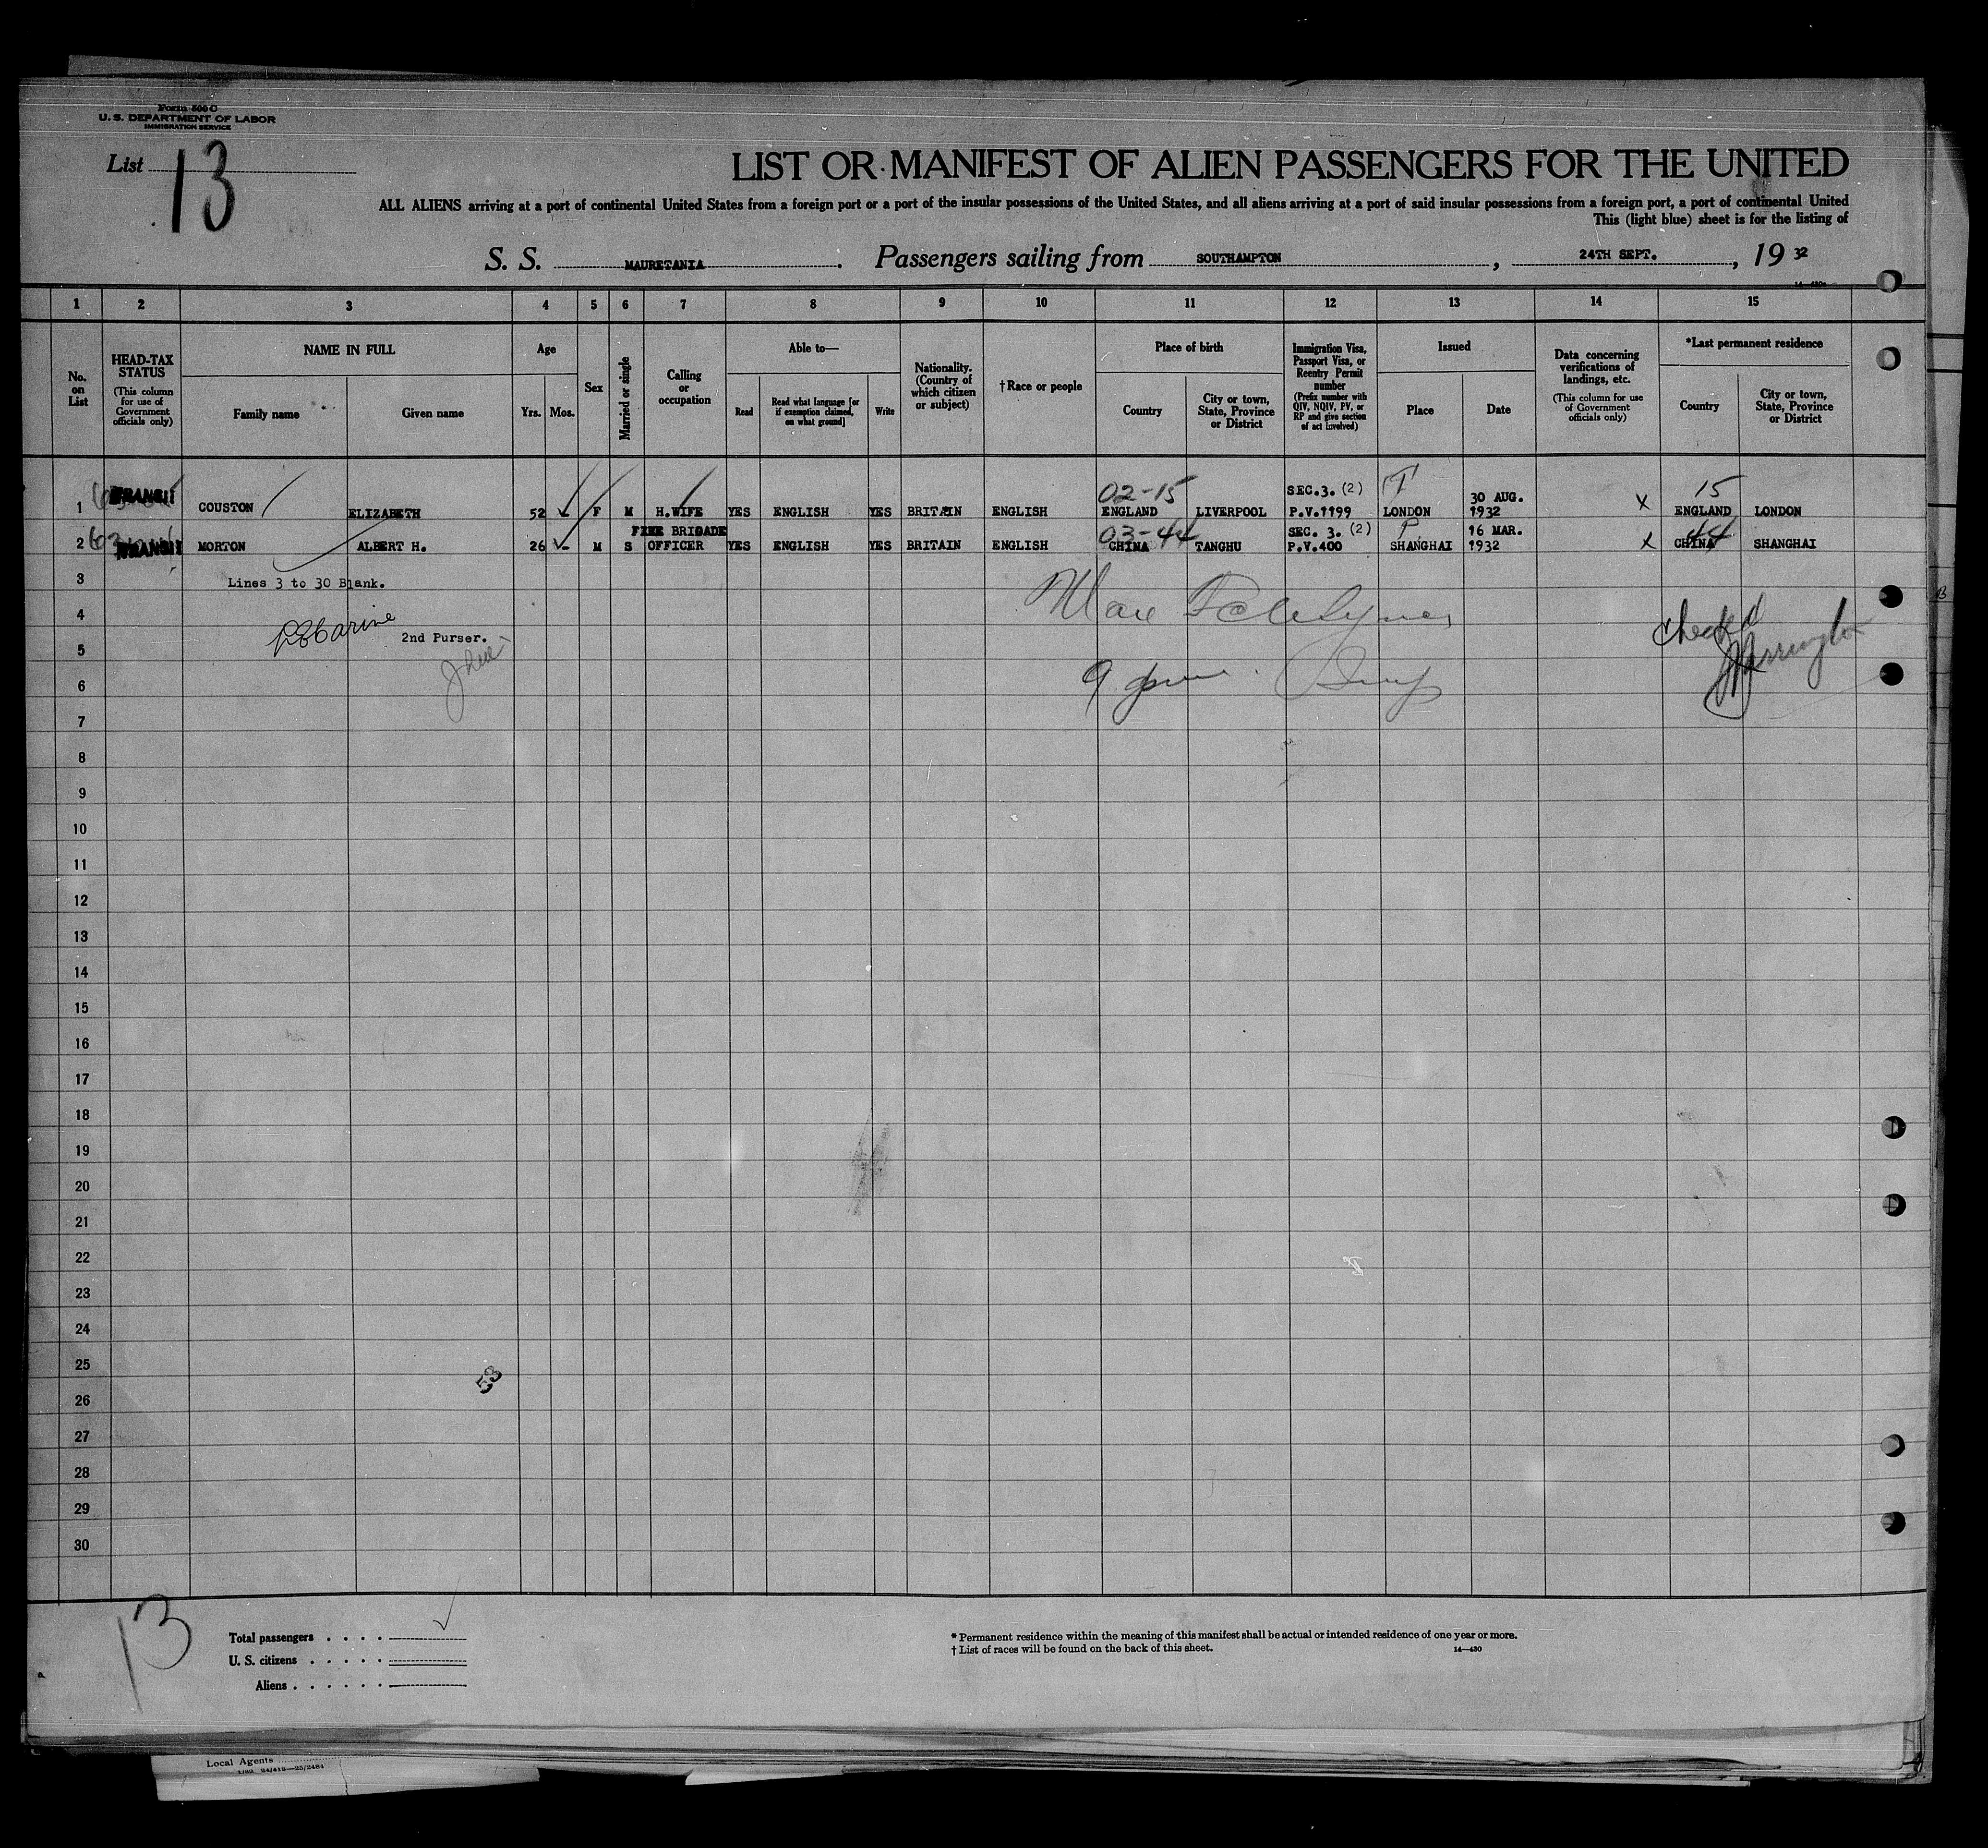 Form 500 C
U. S. DEPARTMENT OF LABOR
IMMIGRATION SERVICE
List 13
LIST OR MANIFEST OF ALIEN PASSENGERS FOR THE UNITED
ALL ALIENS arriving at a port of continental United States from a foreign port or a port of the insular possessions of the United States, and all aliens arriving at a port of said insular possessions from a foreign port, a port of continental United
This (light blue) sheet is for the listing of
S. S. MAURETANIA. Passengers sailing from SOUTHAMPTON, 24TH SEPT., 19 32
1 2 3 4 5 6 7 8 9 10 11 12 13 14 15
No. on List
HEAD-TAX STATUS
(This column for use of Government officials only)
NAME IN FULL
Family name
Given name
Age
Yrs. Mos.
Sex
Married or single
Calling or occupation
Able to—
Read
Read what language [or if exemption claimed, on what ground]
Write
Nationality. (Country of which citizen or subject)
†Race or people
Place of birth
Country
City or town, State, Province or District
Immigration Visa, Passport Visa, or Reentry Permit number
(Prefix number with QIV, NQIV, PV, or RP and give section of act involved)
Issued
Place
Date
Data concerning verifications of landings, etc.
(This column for use of Government officials only)
*Last permanent residence
Country
City or town, State, Province or District
02-15 SEC.3. (2) 30 AUG. 15
1 TRANSIT COUSTON ELIZABETH 52 F M H.WIFE YES ENGLISH YES BRITAIN ENGLISH ENGLAND LIVERPOOL P.V.1199 LONDON 1932 X ENGLAND LONDON
FIRE BRIGADE 03-44 SEC. 3. (2) 16 MAR. 44
2 TRANSIT MORTON ALBERT H. 26 M S OFFICER YES ENGLISH YES BRITAIN ENGLISH CHINA TANGHU P.V.400 SHANGHAI 1932 X CHINA SHANGHAI
3 Lines 3 to 30 Blank.
4
checked
2nd Purser.
5
6
7
8
9
10
11
12
13
14
15
16
17
18
19
20
21
22
23
24
25
53
26
27
28
29
30
13
Total passengers
U. S. citizens
Aliens
* Permanent residence within the meaning of this manifest shall be actual or intended residence of one year or more.
† List of races will be found on the back of this sheet. 14—430
Local Agents